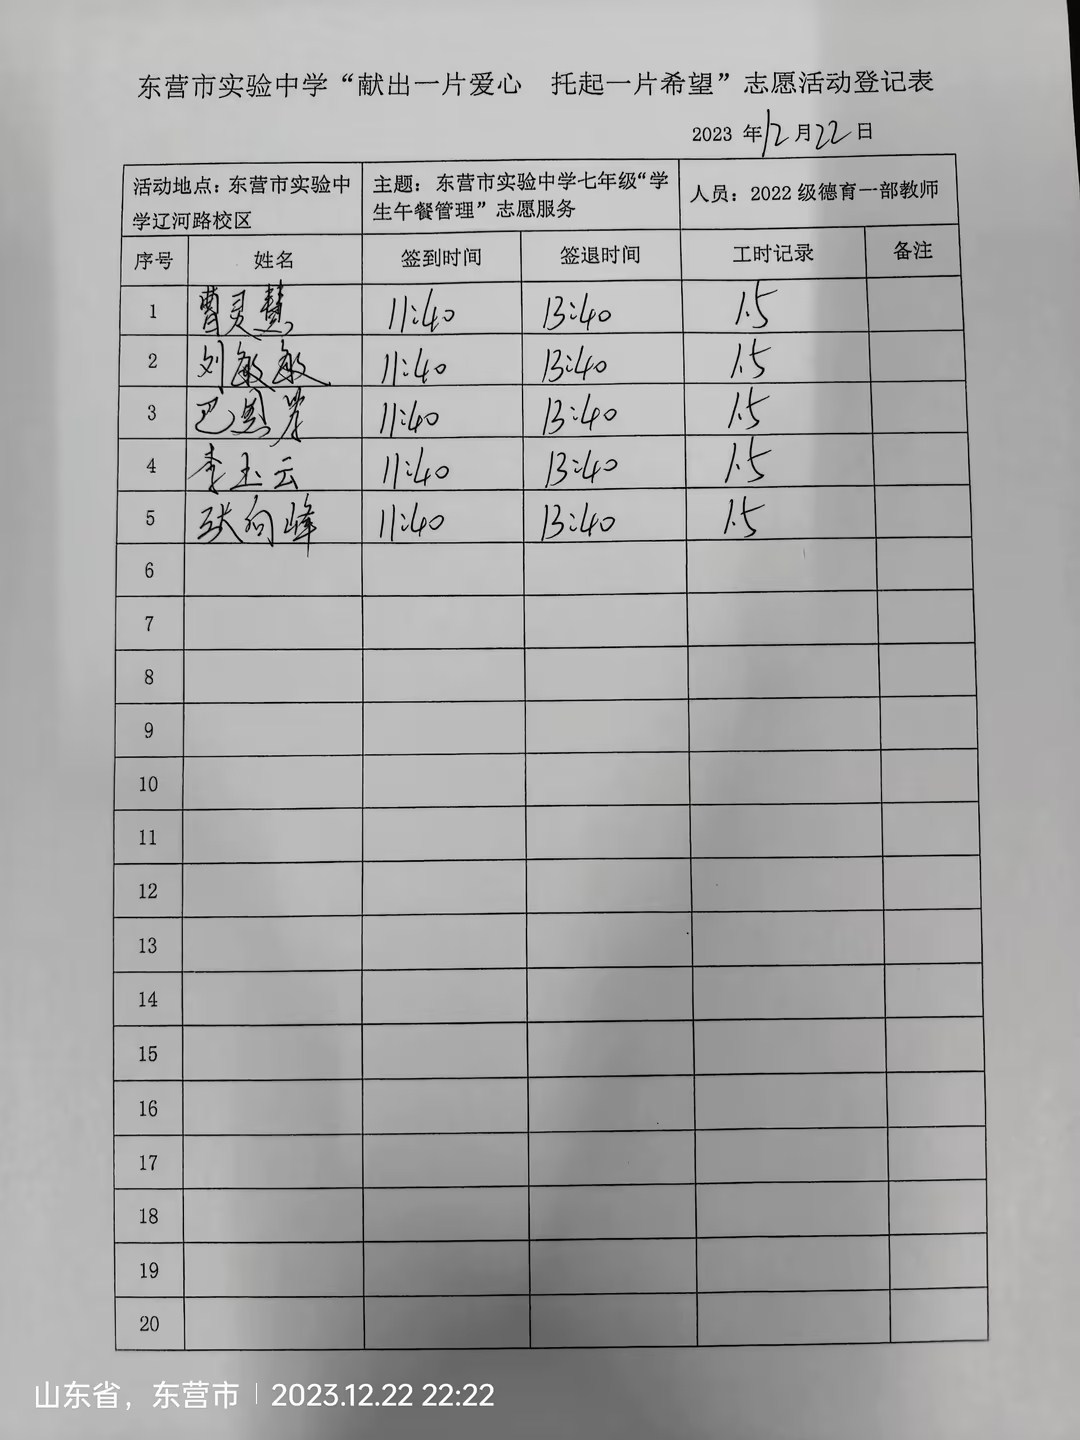 东营市实验中学“献出一片爱心 托起一片希望”志愿活动登记表
2023 年12月22日
活动地点：东营市实验中
学辽河路校区
主题：东营市实验中学七年级“学
生午餐管理”志愿服务
人员：2022 级德育一部教师
序号 姓名 签到时间 签退时间 工时记录 备注
1 曹灵慧 11:40 13:40 1.5
2 刘敏敏 11:40 13:40 1.5
3 巴 11:40 13:40 1.5
4 李玉云 11:40 13:40 1.5
5 张向峰 11:40 13:40 1.5
6
7
8
9
10
11
12
13
14
15
16
17
18
19
20
山东省，东营市 | 2023.12.22 22:22